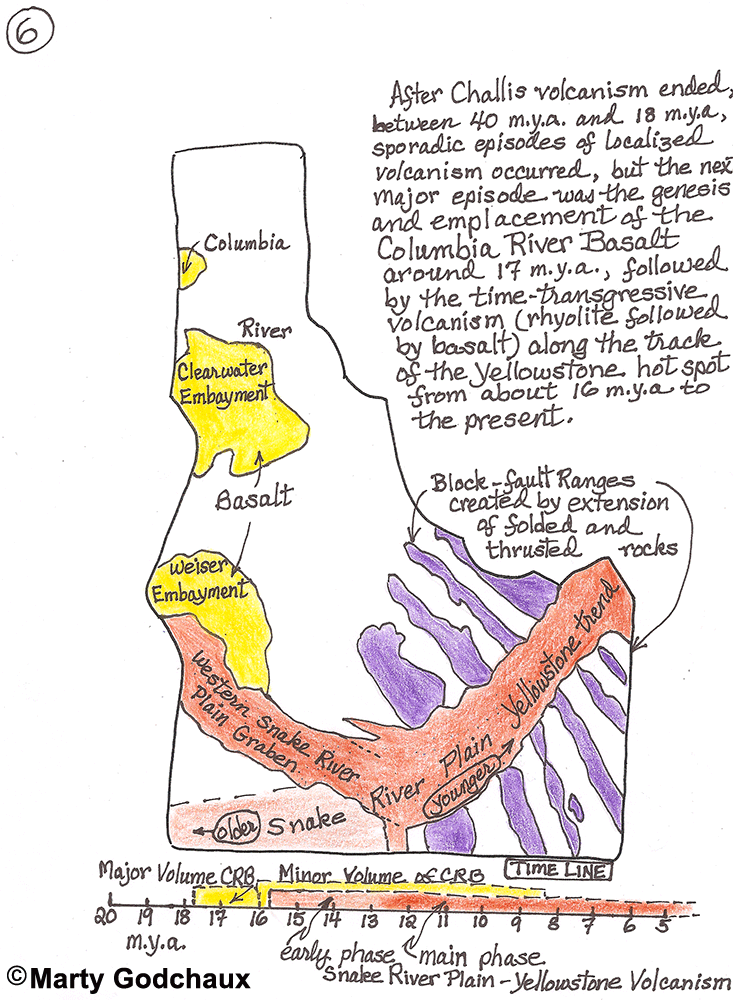 6
After Challis volcanism ended,
between 40 m.y.a. and 18 m.y.a,
sporadic episodes of localized
volcanism occurred, but the nex
major episode was the genesis
and emplacement of the
Columbia River Basalt
around 17 m.y.a., followed
by the time-transgressive
volcanism (rhyolite followed
by basalt) along the track
of the Yellowstone hot spot
from about 16 m.y.a to
the present.
Columbia
River
Clearwater
Embayment
Basalt
Block-fault Ranges
created by extension
of folded and
thrusted rocks
Weiser
Embayment
Western Snake River
Plain Graben
Snake River Plain Yellowstone trend
younger
older
TIME LINE
Major Volume CRB Minor Volume of CRB
20 19 18 17 16 15 14 13 12 11 10 9 8 7 6 5
m.y.a.
early phase main phase
Snake River Plain - Yellowstone Volcanism
©Marty Godchaux